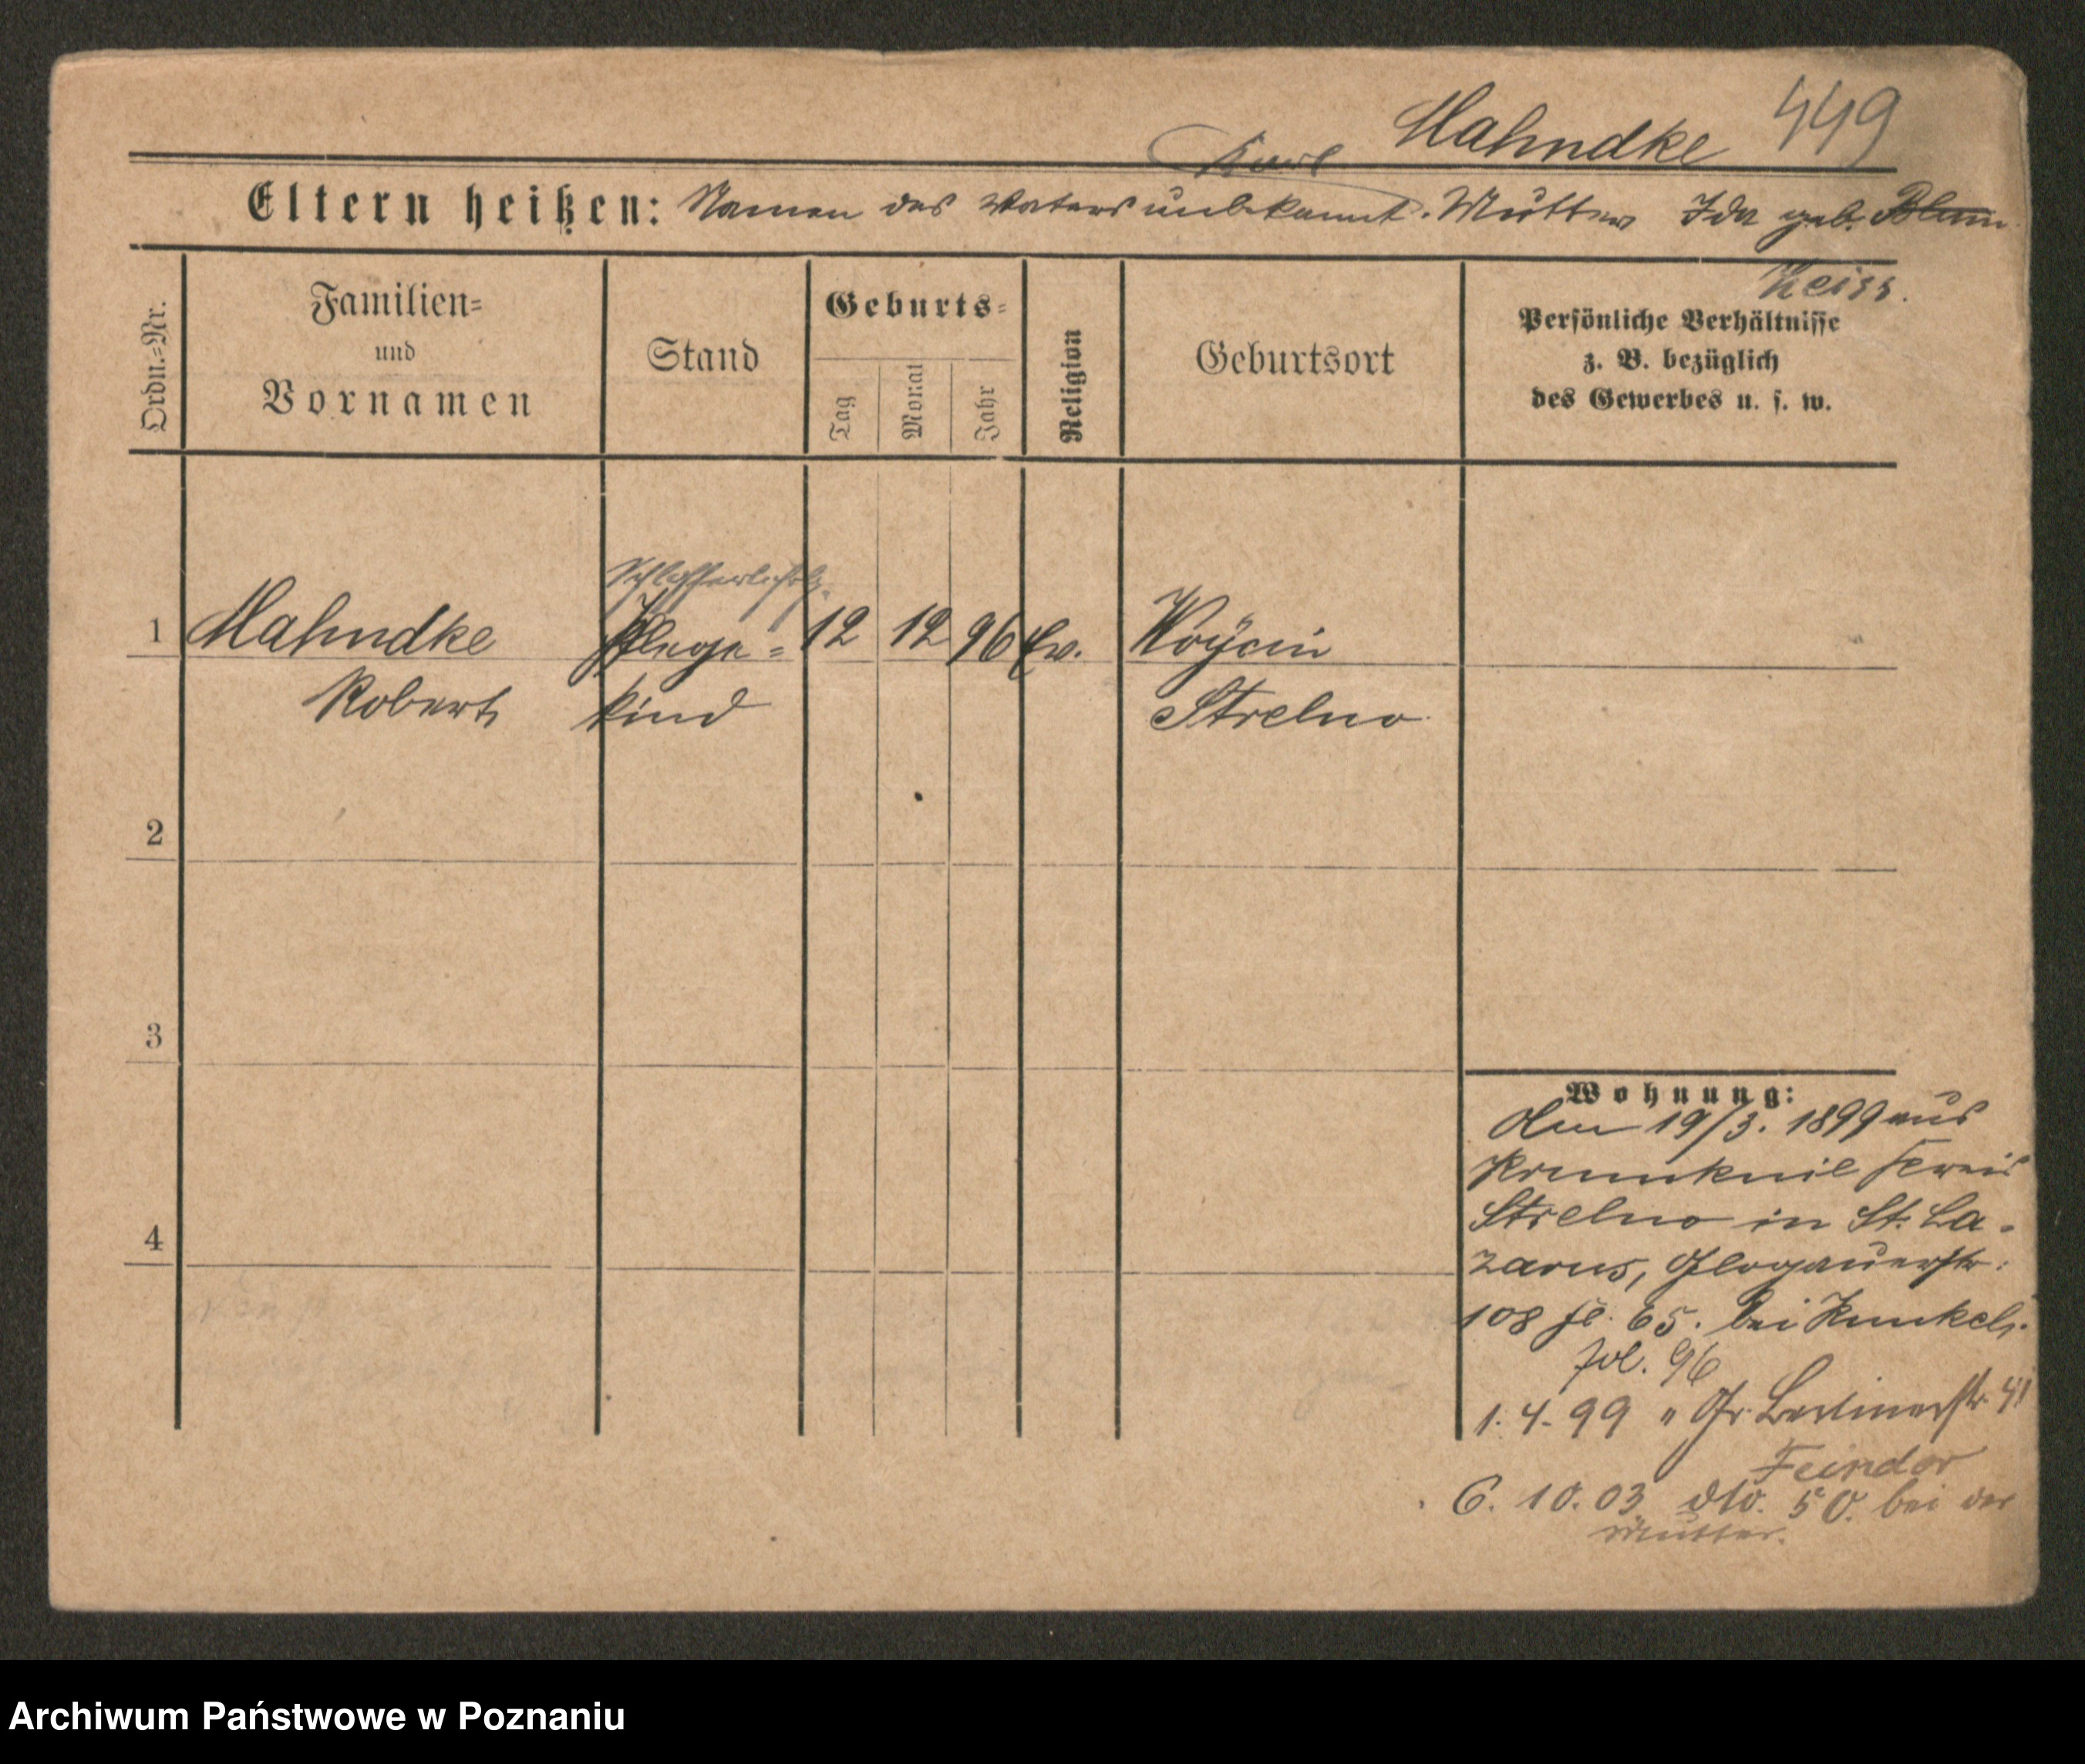 Mahndke 449
Karl
Eltern heißen: Namen des Vaters unbekannt. Mutter Ida geb. Blum
Familien=
und
Vornamen
Ordn.=Nr.
Stand
Geburts=
Tag
Monat
Jahr
Religion
Geburtsort
Persönliche Verhältnisse
z. B. bezüglich
des Gewerbes u. s. w.
1 Mahndke Pflege= 12 12 96 Ev. Woÿcin
Robert kind Strelno
2
3
4
Wohnung:
Am 19/3. 1899 aus
Kreis
Strelno in St. La-
zarus, Glogauerstr.
108 fl. 65. bei Kunkel.
fol. 96
1. 4. 99 " Gr. Berlinerstr. 41
6. 10. 03 dto. 50. bei der
Mutter.
Archiwum Państwowe w Poznaniu